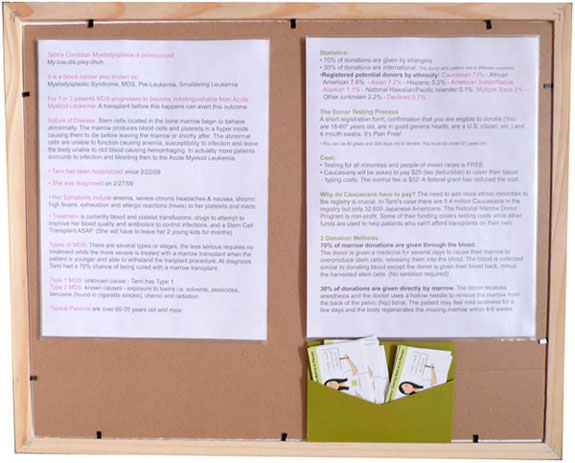 Tami's Condition Myelodysplasia is pronounced
My-low-dis-play-zhuh
It is a blood cancer also known as
Myelodysplastic Syndrome, MDS, Pre-Leukemia, Smoldering Leukemia
For 1 in 3 patients MDS progresses to become indistinguishable from Acute
Myeloid Leukemia. A transplant before this happens can avert this outcome
Nature of Disease: Stem cells located in the bone marrow begin to behave
abnormally. The marrow produces blood cells and platelets in a hyper mode
causing them to die before leaving the marrow or shortly after. The abnormal
cells are unable to function causing anemia, susceptibility to infection and leave
the body unable to clot blood causing hemorrhaging. In actuality more patients
succumb to infection and bleeding then to the Acute Myeloid Leukemia.
• Tami has been hospitalized since 2/22/09
• She was diagnosed on 2/27/09
• Her Symptoms include anemia, severe chronic headaches & nausea, chronic
high fevers, exhaustion and allergic reactions (hives) to her platelets and meds.
• Treatment is currently blood and platelet transfusions, drugs to attempt to
improve her blood quality and antibiotics to control infections, and a Stem Cell
Transplant ASAP. (She will have to leave her 2 young kids for months)
Types of MDS- There are several types or stages, the less serious requires no
treatment while the more severe is treated with a marrow transplant when the
patient is younger and able to withstand the tranplant procedure. At diagnosis
Tami had a 70% chance of being cured with a marrow transplant.
Type 1 MDS: unknown cause - Tami has Type 1
Type 2 MDS: known causes - exposure to toxins i.e. solvents, pesticides,
benzene (found in cigarette smoke), chemo and radiation.
Typical Patients are over 60-70 years old and male
Statistics:
• 70% of donations are given by strangers.
• 30% of donations are international. The donor and patient live in different countries
•Registered potential donors by ethnicity: Caucasian 73% - African
American 7.6% - Asian 7.2% - Hispanic 5.2% - American Indian/Native
Alaskan 1.1% - National Hawaiian/Pacific Islander 0.1%, Multiple Race 3% -
Other /unknown 2.2% - Declined 0.2%
The Donor Testing Process
A short registration form, confirmation that you are eligible to donate (You
are 18-60* years old, are in good general health, are a U.S. citizen, etc.) and
4 mouth swabs. It's Pain Free!
• You can be 60 years and 364 days old to donate. You must be under 61 years old
Cost:
• Testing for all minorities and people of mixed races is FREE.
• Caucasians will be asked to pay $25 (tax deductible) to cover their tissue
typing costs. The normal fee is $52. A federal grant has reduced the cost.
Why do Caucasians have to pay? The need to add more ethnic minorities to
the registry is crucial. In Tami's case there are 5.4 million Caucasians in the
registry but only 32,600 Japanese Americans. The National Marrow Donor
Program is non-profit. Some of their funding covers testing costs while other
funds are used to help patients who can't afford transplants on their own.
2 Donation Methods:
70% of marrow donations are given through the blood.
The donor is given a medicine for several days to cause their marrow to
overproduce stem cells, releasing them into the blood. The blood is collected
similar to donating blood except the donor is given their blood back, minus
the harvested stem cells. (No sedation required)
30% of donations are given directly by marrow. The donor receives
anesthesia and the doctor uses a hollow needle to remove the marrow from
the back of the pelvic (hip) bone. The patient may feel mild soreness for a
few days and the body regenerates the missing marrow within 4-6 weeks.